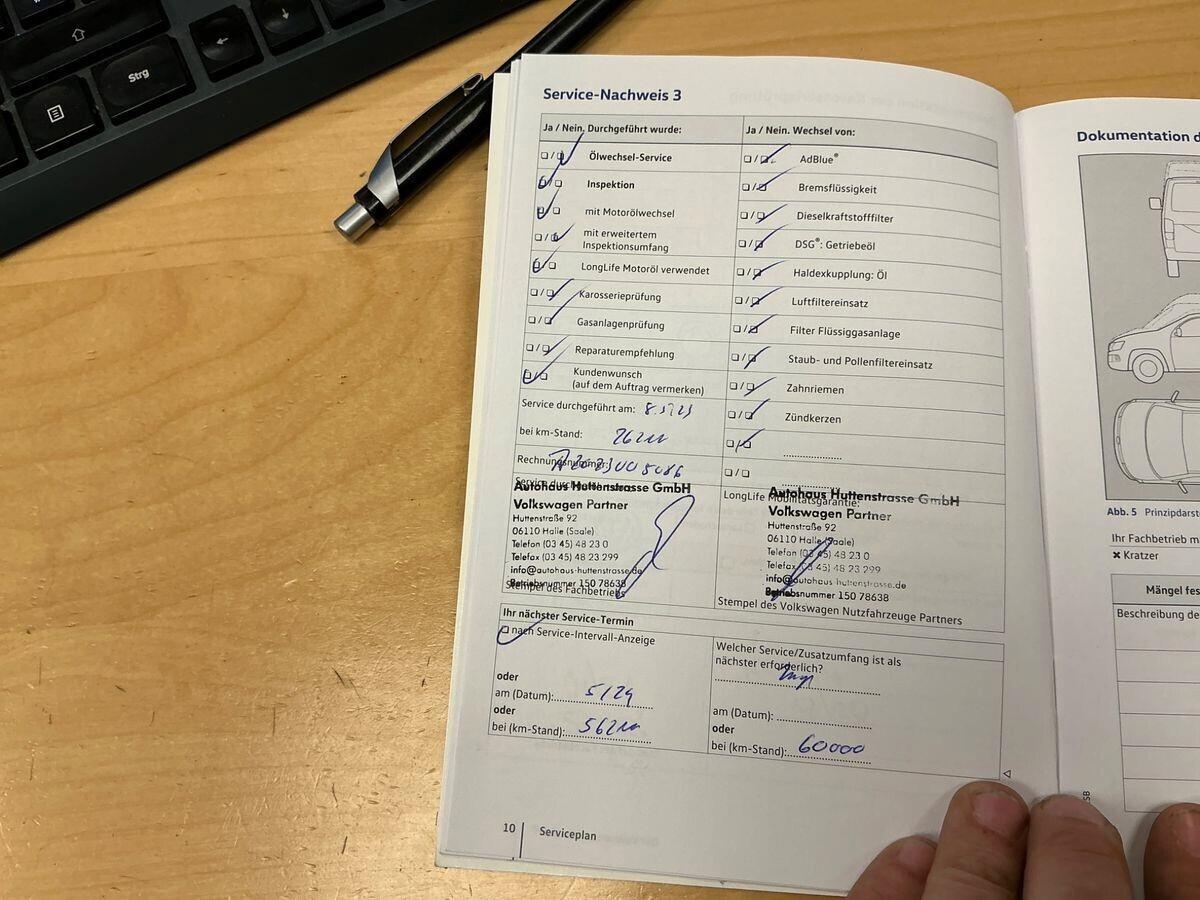 Strg
Service-Nachweis 3
Ja / Nein. Durchgeführt wurde:
Ölwechsel-Service
Inspektion
mit Motorölwechsel
mit erweitertem
Inspektionsumfang
LongLife Motoröl verwendet
Karosserieprüfung
Gasanlagenprüfung
Reparaturempfehlung
Kundenwunsch
(auf dem Auftrag vermerken)
Service durchgeführt am:
bei km-Stand:
Rechnungsnummer:
Autohaus Huttenstrasse GmbH
Volkswagen Partner
Huttenstraße 92
06110 Halle (Saale)
Telefon (03 45) 48 23 0
Telefax (03 45) 48 23 299
info@autohaus-huttenstrasse.de
Betriebsnummer 150 78638
Stempel des Fachbetriebs
Ja / Nein. Wechsel von:
AdBlue®
Bremsflüssigkeit
Dieselkraftstofffilter
DSG®: Getriebeöl
Haldexkupplung: Öl
Luftfiltereinsatz
Filter Flüssiggasanlage
Staub- und Pollenfiltereinsatz
Zahnriemen
Zündkerzen
LongLife Mobilitätsgarantie:
Autohaus Huttenstrasse GmbH
Volkswagen Partner
Huttenstraße 92
06110 Halle (Saale)
Telefon (03 45) 48 23 0
Telefax (03 45) 48 23 299
info@autohaus-huttenstrasse.de
Betriebsnummer 150 78638
Stempel des Volkswagen Nutzfahrzeuge Partners
Ihr nächster Service-Termin
nach Service-Intervall-Anzeige
oder
am (Datum): 5/24
oder
bei (km-Stand):
Welcher Service/Zusatzumfang ist als
nächster erforderlich?
am (Datum):
oder
bei (km-Stand): 60000
10 Serviceplan
Dokumentation d
Abb. 5 Prinzipdarst
Ihr Fachbetrieb m
✖ Kratzer
Mängel fes
Beschreibung de